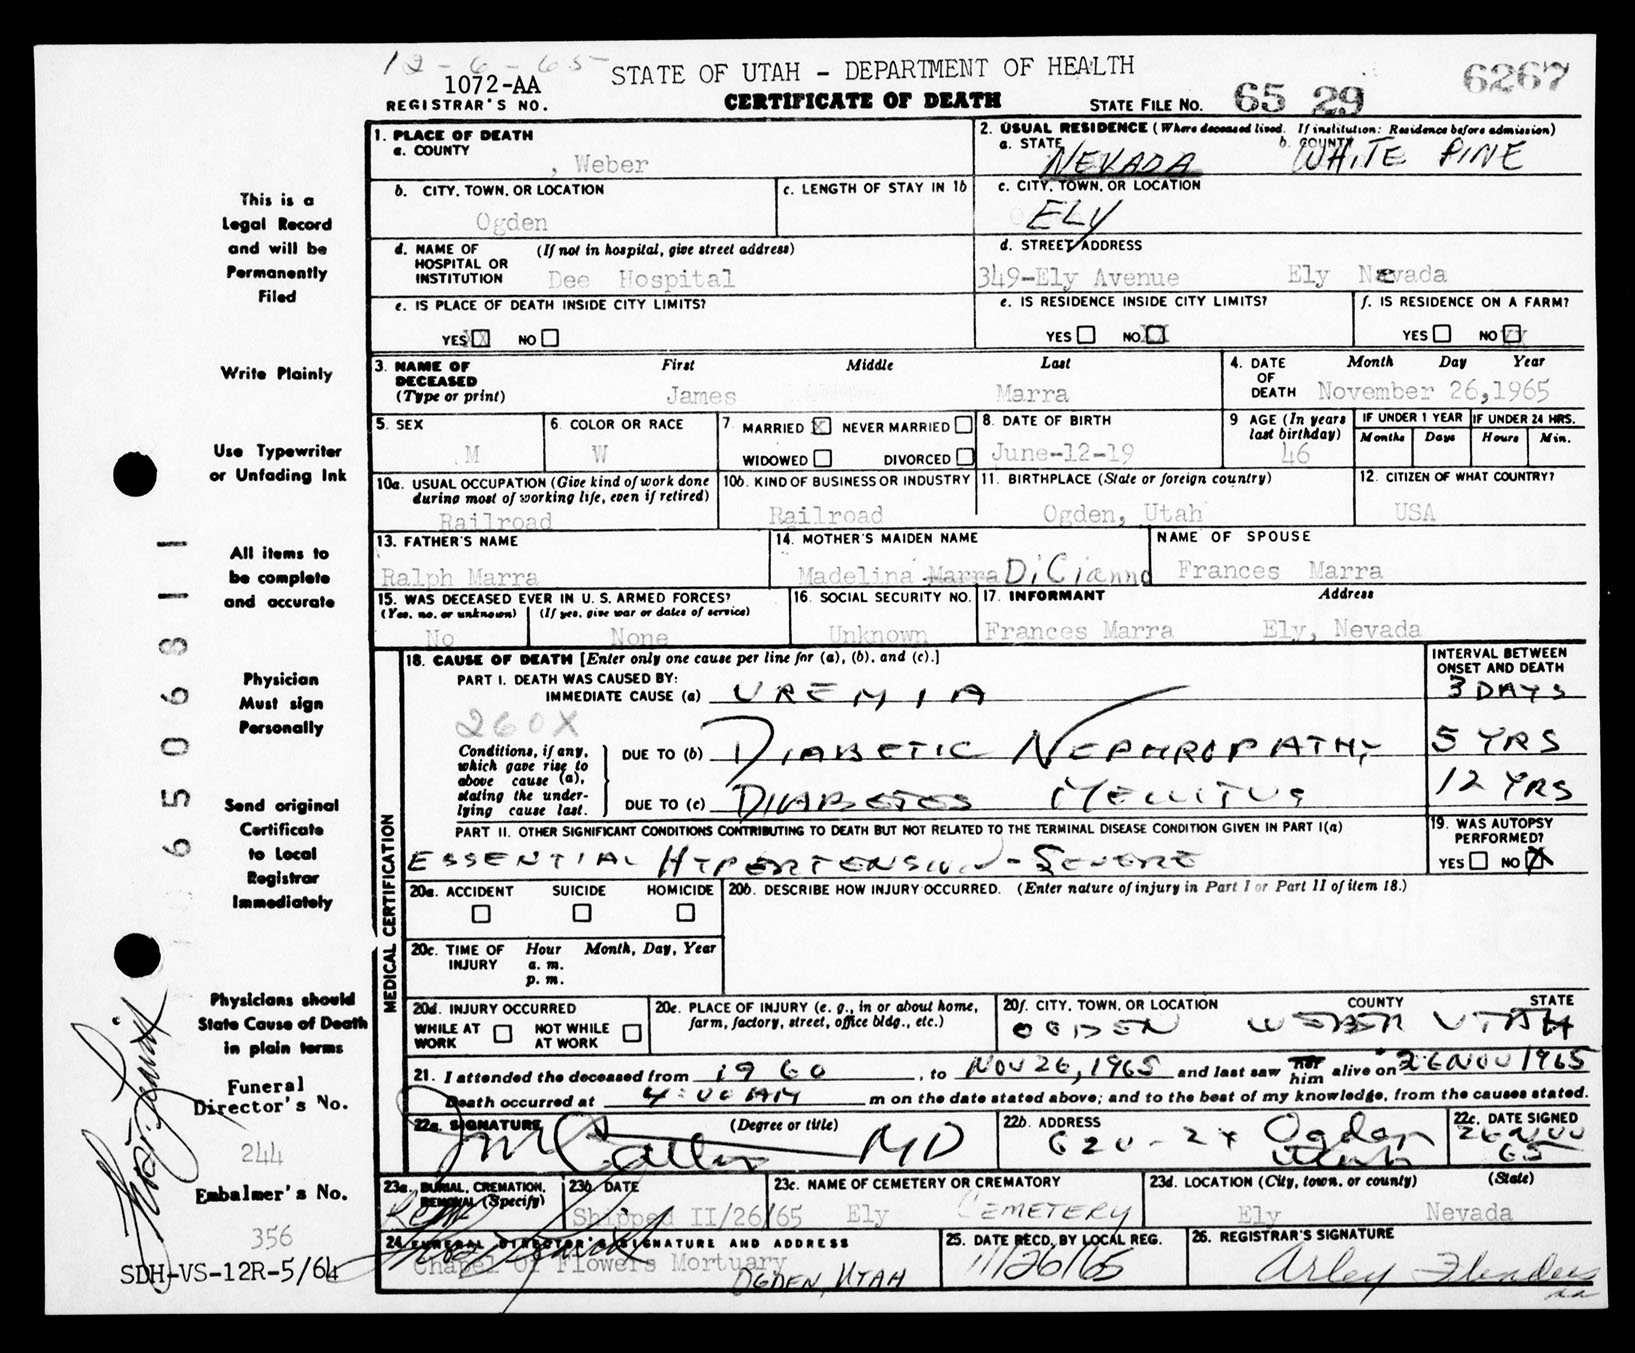 12-6-65
1072-AA
REGISTRAR'S NO.
STATE OF UTAH - DEPARTMENT OF HEALTH
CERTIFICATE OF DEATH
STATE FILE NO. 65 29
6267
This is a
Legal Record
and will be
Permanently
Filed
Write Plainly
Use Typewriter
or Unfading Ink
All items to
be complete
and accurate
Physician
Must sign
Personally
Send original
Certificate
to Local
Registrar
Immediately
Physicians should
State Cause of Death
in plain terms
Funeral
Director's No.
244
Embalmer's No.
356
SDH-VS-12R-5/64
65 0 68 11
1. PLACE OF DEATH
a. COUNTY
, Weber
2. USUAL RESIDENCE (Where deceased lived. If institution: Residence before admission)
a. STATE NEVADA b. COUNTY WHITE PINE
b. CITY, TOWN, OR LOCATION
Ogden
c. LENGTH OF STAY IN 1b
c. CITY, TOWN, OR LOCATION
ELY
d. NAME OF HOSPITAL OR INSTITUTION (If not in hospital, give street address)
Dee Hospital
d. STREET ADDRESS
349-Ely Avenue Ely Nevada
e. IS PLACE OF DEATH INSIDE CITY LIMITS?
YES XX NO
e. IS RESIDENCE INSIDE CITY LIMITS?
YES NO XX
f. IS RESIDENCE ON A FARM?
YES NO XX
3. NAME OF DECEASED (Type or print)
First Middle Last
James Marra
4. DATE OF DEATH
Month Day Year
November 26,1965
5. SEX
M
6. COLOR OR RACE
W
7 MARRIED X NEVER MARRIED
WIDOWED DIVORCED
8. DATE OF BIRTH
June-12-19
9 AGE (In years last birthday)
46
IF UNDER 1 YEAR
Months Days
IF UNDER 24 HRS.
Hours Min.
10a. USUAL OCCUPATION (Give kind of work done during most of working life, even if retired)
Railroad
10b. KIND OF BUSINESS OR INDUSTRY
Railroad
11. BIRTHPLACE (State or foreign country)
Ogden, Utah
12. CITIZEN OF WHAT COUNTRY?
USA
13. FATHER'S NAME
Ralph Marra
14. MOTHER'S MAIDEN NAME
Madelina Marra DiCianno
NAME OF SPOUSE
Frances Marra
15. WAS DECEASED EVER IN U. S. ARMED FORCES?
(Yes, no, or unknown) (If yes, give war or dates of service)
No None
16. SOCIAL SECURITY NO.
Unknown
17. INFORMANT Address
Frances Marra Ely, Nevada
MEDICAL CERTIFICATION
18. CAUSE OF DEATH [Enter only one cause per line for (a), (b), and (c).]
PART I. DEATH WAS CAUSED BY:
IMMEDIATE CAUSE (a) UREMIA
260X
Conditions, if any, which gave rise to above cause (a), stating the underlying cause last.
DUE TO (b) DIABETIC NEPHROPATHY
DUE TO (c) DIABETES MELLITUS
INTERVAL BETWEEN ONSET AND DEATH
3 DAYS
5 YRS
12 YRS
PART II. OTHER SIGNIFICANT CONDITIONS CONTRIBUTING TO DEATH BUT NOT RELATED TO THE TERMINAL DISEASE CONDITION GIVEN IN PART I(a)
ESSENTIAL HYPERTENSION - SEVERE
19. WAS AUTOPSY PERFORMED?
YES NO X
20a. ACCIDENT SUICIDE HOMICIDE
20b. DESCRIBE HOW INJURY OCCURRED. (Enter nature of injury in Part I or Part II of item 18.)
20c. TIME OF INJURY
Hour Month, Day, Year
a. m.
p. m.
20d. INJURY OCCURRED
WHILE AT WORK NOT WHILE AT WORK
20e. PLACE OF INJURY (e. g., in or about home, farm, factory, street, office bldg., etc.)
20f. CITY, TOWN, OR LOCATION COUNTY STATE
OGDEN WEBER UTAH
21. I attended the deceased from 1960, to NOV 26, 1965 and last saw her him alive on 26 NOV 1965
Death occurred at 4:00 AM m on the date stated above; and to the best of my knowledge, from the causes stated.
22a. SIGNATURE (Degree or title)
MD
22b. ADDRESS
Ogden
Utah
22c. DATE SIGNED
26 NOV
65
23a. BURIAL, CREMATION, REMOVAL (Specify)
Rem
23b. DATE
Shipped II/26/65
23c. NAME OF CEMETERY OR CREMATORY
Ely CEMETERY
23d. LOCATION (City, town, or county) (State)
Ely Nevada
24. FUNERAL DIRECTOR'S SIGNATURE AND ADDRESS
Chapel Of Flowers Mortuary
OGDEN, UTAH
25. DATE RECD. BY LOCAL REG.
11/26/65
26. REGISTRAR'S SIGNATURE
Arley Flinders